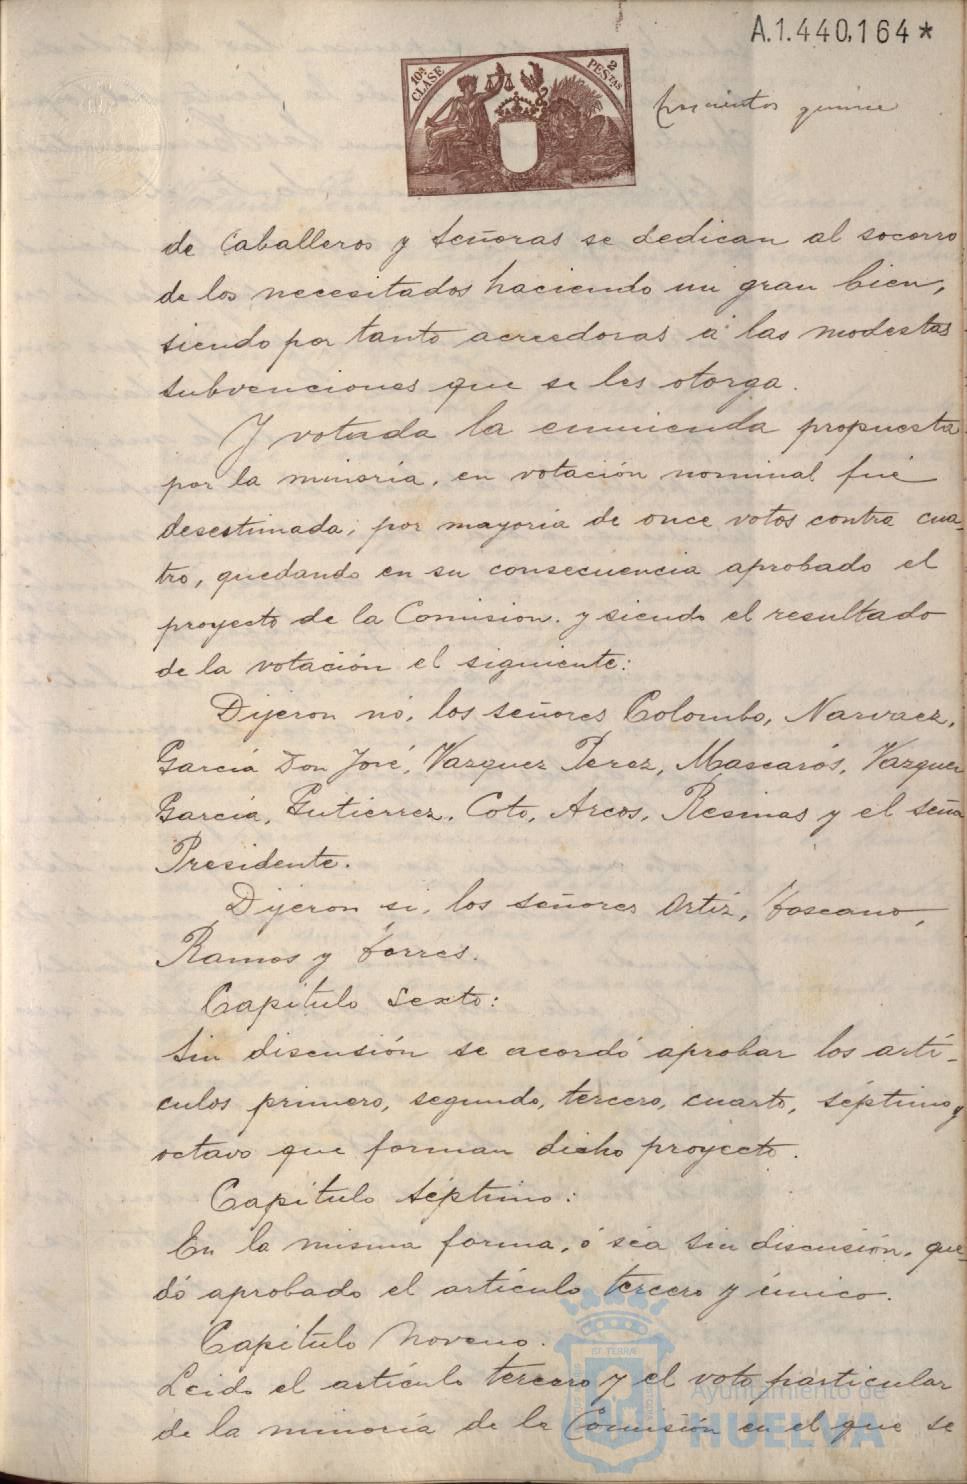 A.1.440,164*
10ª CLASE
2 PESTAS
quince
de Caballeros y Señoras se dedican al socorro
de los necesitados haciendo un gran bien,
siendo por tanto acreedoras á las modestas
subvenciones que se les otorga.
Y votada la enmienda propuesta
por la minoría, en votación nominal fué
desestimada, por mayoria de once votos contra cua-
tro, quedando en su consecuencia aprobado el
proyecto de la Comision. y siendo el resultado
de la votación el siguiente:
Dijeron nó, los señores Colombo, Narvaez,
García Don José, Vazquez Perez, Mascarós, Vazquez
García, Gutiérrez, Coto, Arcos, Resinas y el señor
Presidente.
Dijeron si, los señores Ortíz, Toscano,
Ramos y Torres.
Capítulo Sexto:
Sin discusión se acordó aprobar los artí-
culos primero, segundo, tercero, cuarto, séptimo y
octavo que forman dicho proyecto.
Capítulo Séptimo:
En la misma forma, ó sea sin discusión, que-
dó aprobado el artículo tercero y único.
Capítulo Noveno.
Leido el artículo tercero y el voto particular
de la minoría de la Comisión en el que se
Ayuntamiento de
HUELVA